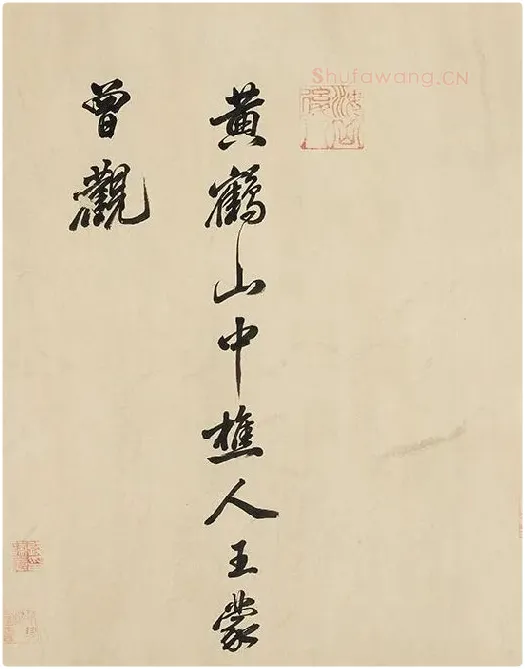 Shufawang.CN
黄鶴山中樵人王蒙
曾觀